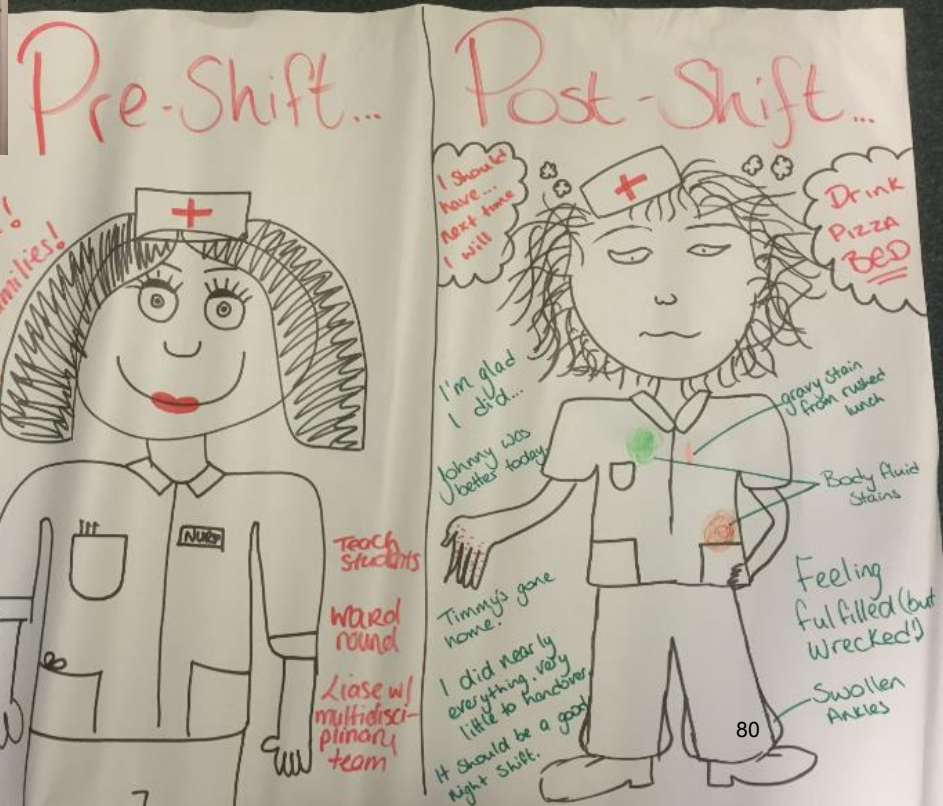 Pre-Shift...
!
amilies!
NURSE
Teach
Students
Ward
round
Liase w/
multidisci-
plinary
team
Post-Shift...
I should
have...
next time
I will
Drink
PIZZA
BED
I'm glad
I did...
Johnny was
better today
Timmy's gone
home.
I did nearly
everything, very
little to handover
It should be a good
night shift.
gravy stain
from rushed
lunch
Body fluid
Stains
Feeling
fulfilled (but
wrecked!)
Swollen
Ankles
80